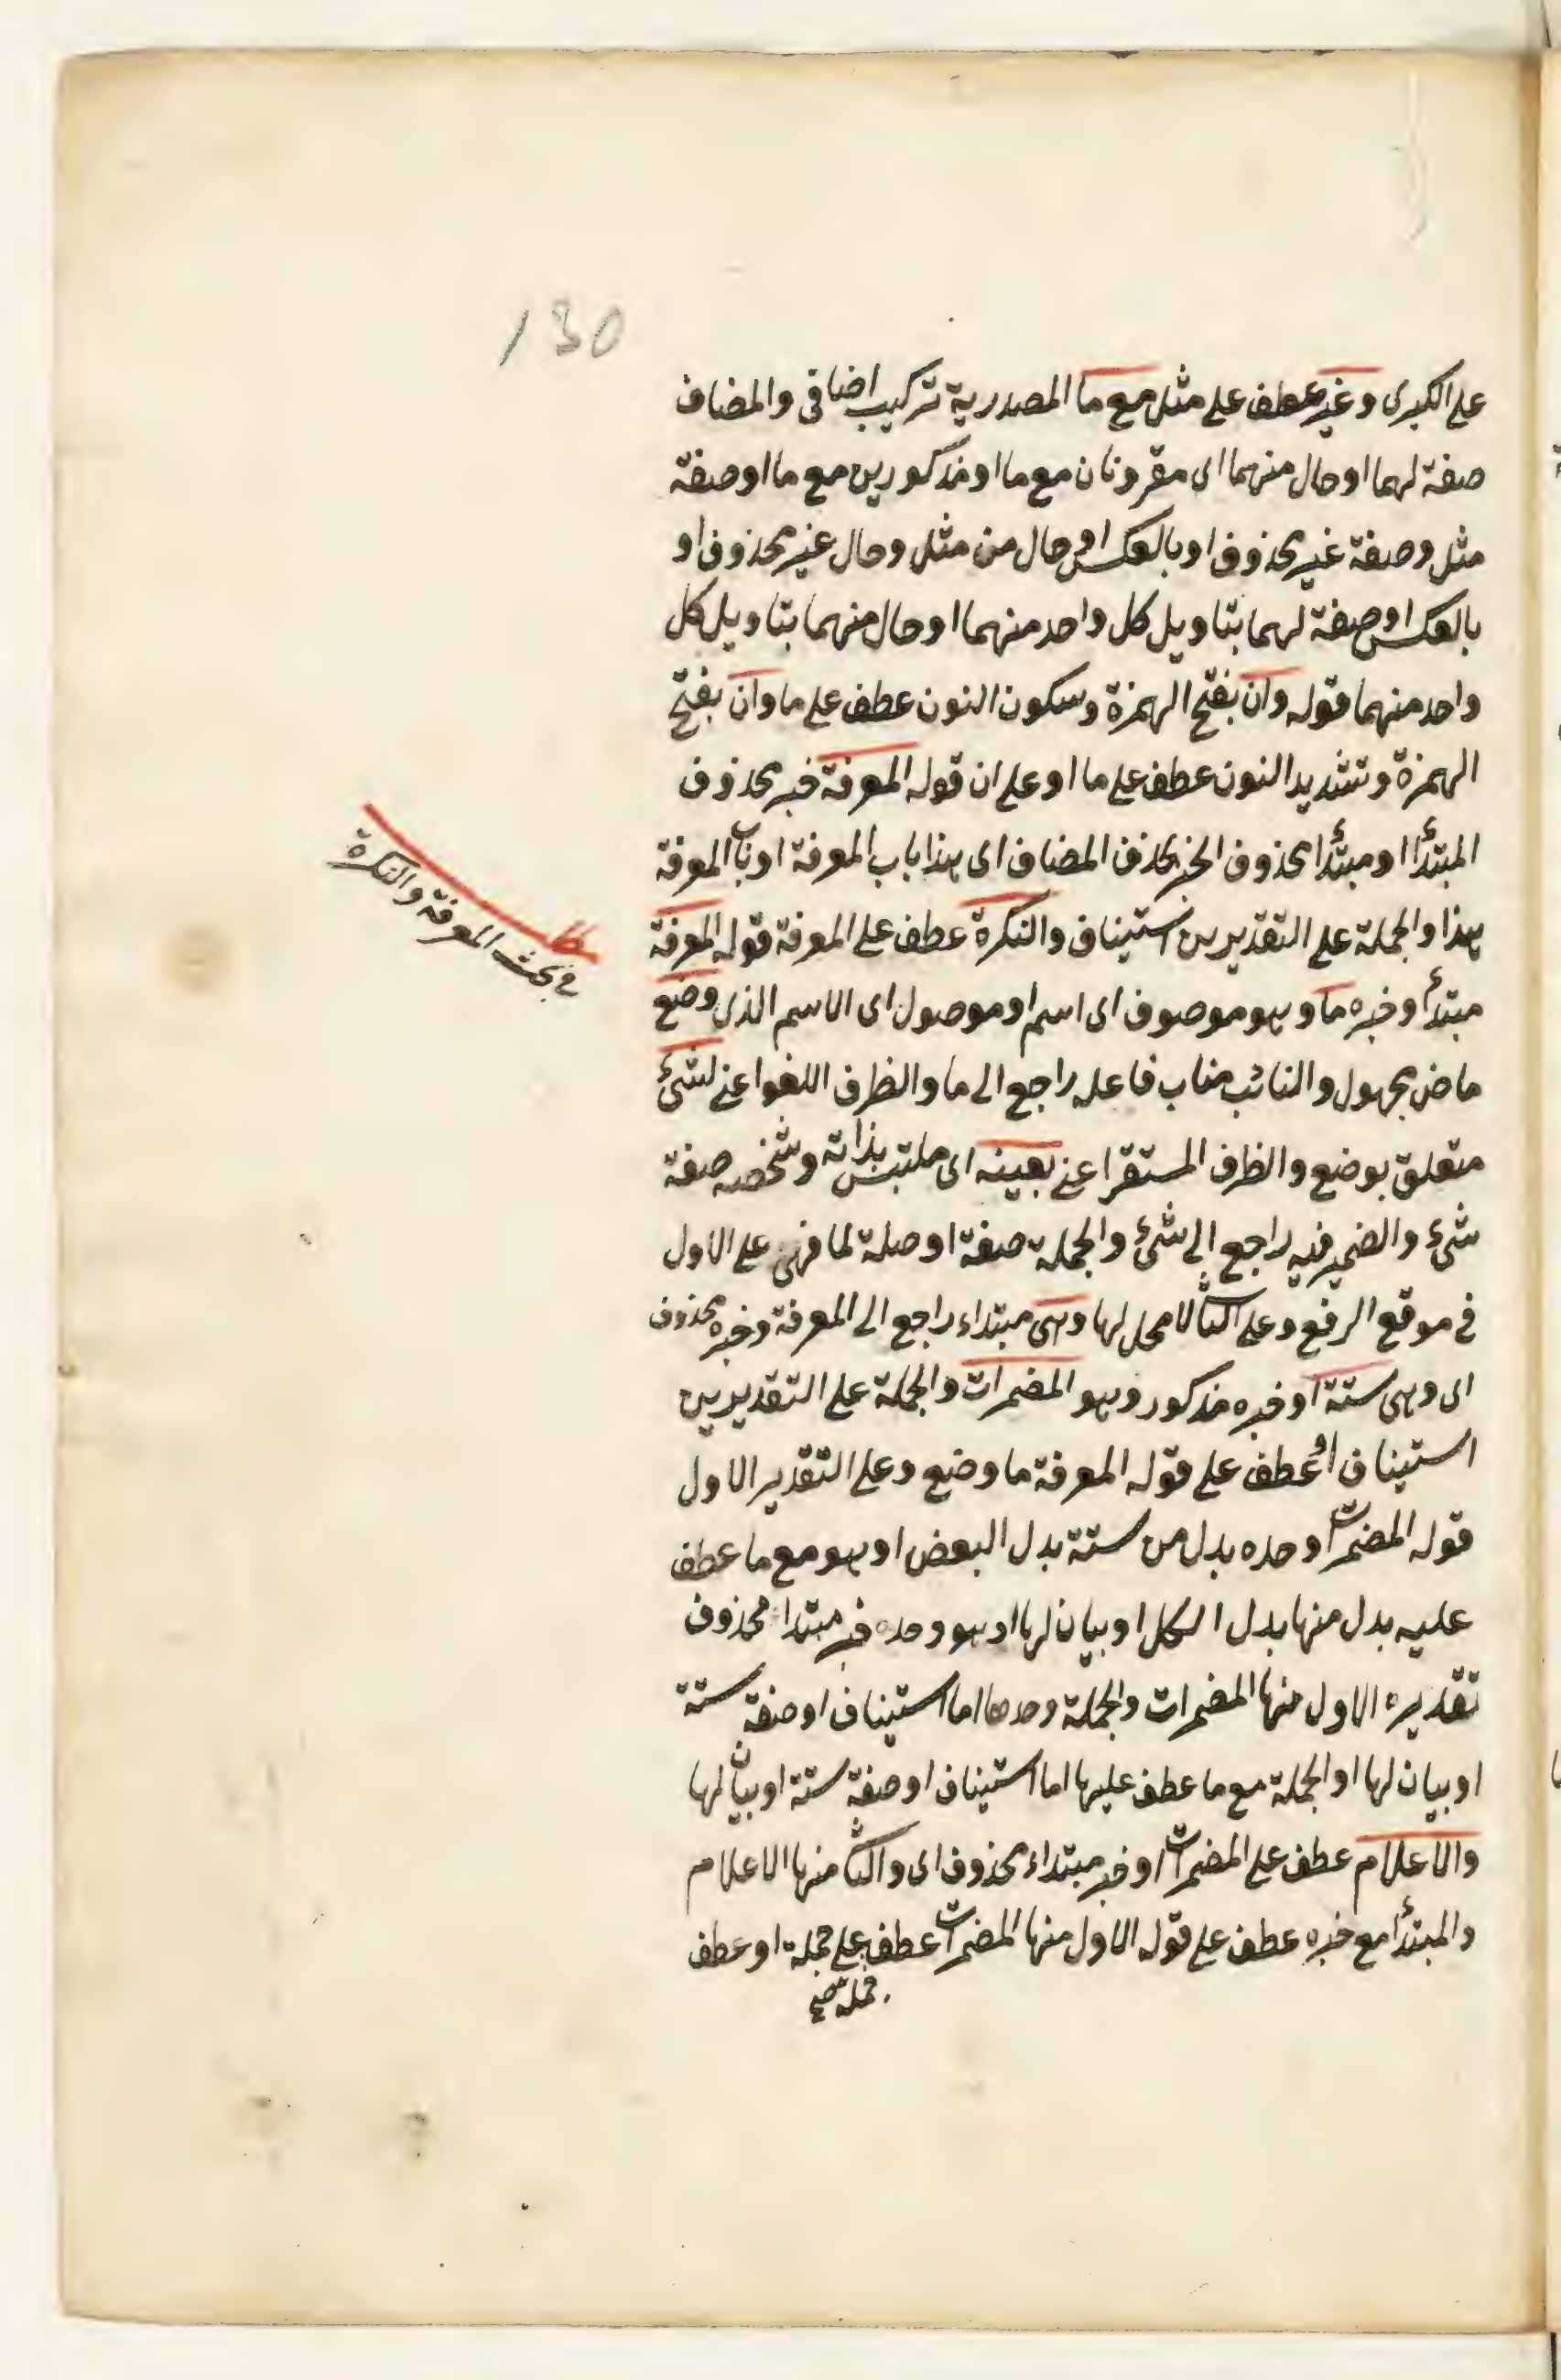 130
على الكبرى وغير عطف على مثل مع ما المصدرية تركيب اضافى والمضاف
صفة لهما او حال منهما اى مقرونان مع ما او مذكورين مع ما او صفة
مثل وصفة غير محذوف او بالعكس او حال من مثل وحال غير محذوف او
بالعكس او صفة لهما بتاويل كل واحد منهما او حال منهما بتاويل كل
واحد منهما قوله وان بفتح الهمزة وسكون النون عطف على ما وان بفتح
الهمزة وتشديد النون عطف على ما او على ان قوله المعرفة خبر محذوف
المبتدأ او مبتدأ محذوف الخبر بحذف المضاف اى هذا باب المعرفة او باب المعرفة
هذا والجملة على التقديرين استيناف والنكرة عطف على المعرفة قوله المعرفة
مبتدأ وخبره ما وهو موصوف اى اسم او موصول اى الاسم الذى وضع
ماض مجهول والنائب مناب فاعله راجع الى ما والظرف اللغو اعنى لشئ
متعلق بوضع والظرف المستقر اعنى بعينه اى ملتبس بذاته وشخصه صفة
شئ والضمير فيه راجع الى شئ والجملة صفة او صلة لما فهى على الاول
فى موقع الرفع وعلى الثا لا محل لها وهى مبتداء راجع الى المعرفة وخبره محذوف
اى وهى ستة او خبره مذكور وهو المضمرات والجملة على التقديرين
استيناف او عطف على قوله المعرفة ما وضع وعلى التقدير الاول
قوله المضمرات وحده بدل من ستة بدل البعض او هو مع ما عطف
عليه بدل منها بدل الكل او بيان لها او هو وحده خبر مبتدا محذوف
تقديره الاول منها المضمرات والجملة وحدها اما استيناف او صفة ستة
او بيان لها او الجملة مع ما عطف عليها اما استيناف او صفة ستة او بيان لها
والاعلام عطف على المضمرات او خبر مبتداء محذوف اى والثا منها الاعلام
والمبتدأ مع خبره عطف على قوله الاول منها المضمرات عطف على جملة او عطف
جملة
فى بحث المعرفة والنكرة